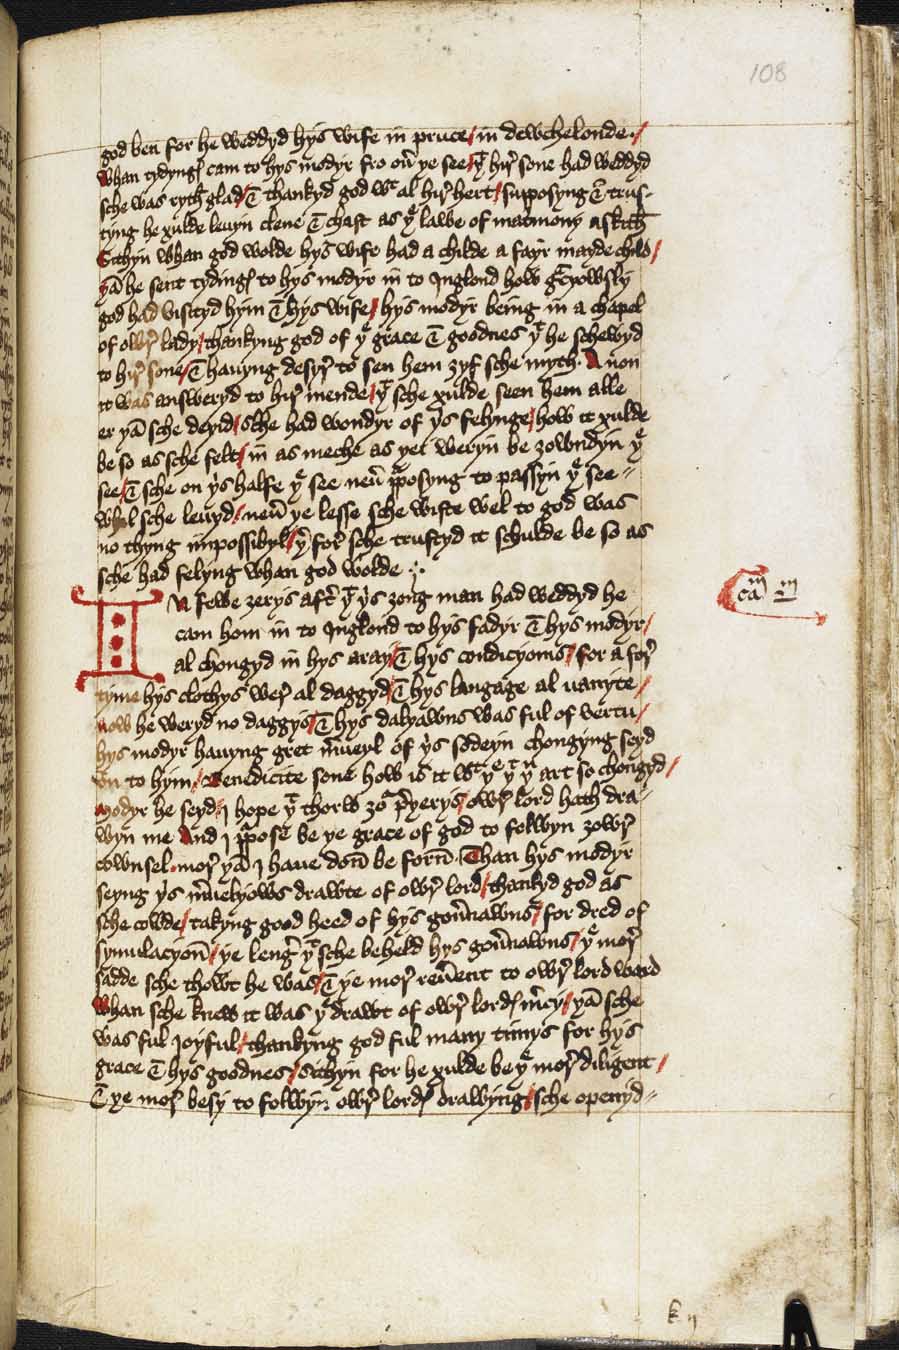 108
god ben for he weddyd hys wife in pruce / in dewchelonde · /
Whan tydyngꝭ cam to hys modyr fro ouͬ þe see / þͭ hirͥ sone had weddyd
sche was rytħ glad / & thankyd god wͭ al hirͥ hert / supposyng & trus-
tyng he xulde leuyn clene & chast as þͤ lawe of matͬmony askitħ
Sithyn whan god wolde hys wife had a childe a fayr mayde child /
þā he sent tydingꝭ to hys modyr in to Inglond how gͣcyowsly
god had visityd hym & hys wife / hys modyr being in a chapel
of owrͥ lady / thankyng god of þͤ grace & goodnes þͭ he schewyd
to hirͥ sone / & hauyng desyrͥ to sen hem ȝyf sche mytħ · A non
it was answeryd to hirͥ mende / þͭ sche xulde seen hem alle
er þā sche deyid / sche had wondyr of þͥs felynge / how it xulde
be so as sche felt / in as meche as þei weryn be ȝowndyn þͤ
see / & sche on þͥs halfe þͤ see neuͬ p̲posyng to passyn þͤ see -
whyl sche leuyd / neuͬ þe lesse sche wiste wel to god was
no thyng impossibyl / þͬ forͥ sche trustyd it schulde be so as
sche had felyng whan god wolde ·
IN fewe ȝerys aftͬ þͭ þͥs ȝong man had weddyd he
cam hom in to Inglond to hys fadyr & hys modyr /
al chongyd in hys aray / & hys condicyonis / for a forͥ
tyme hys clothys werͥ al daggyd / & hys langage al uanyte /
now he weryd no daggys / & hys dalyawns was ful of vertu /
hys modyr hauyng gret mͬueyl of þͥs sodeyn chongyng seyd
vn to hym / Benedicite sone how is it wͭ þͤ þͭ þͧ art so chongyd /
Modyr he seyd / I hope þͭ thorw ȝoͬ p̲yerys / owrͥ lord hath dra-
wyn me And I p̲pose be þe grace of god to folwyn ȝowrͥ
cownsel · morͥ þā I haue don̄ be forn̄ · Than hys modyr
seyng þͥs mͬuelyows drawte of owrͥ lord / thankyd god as
sche cowde / takyng good heed of hys gouͬnawns / for dred of
symulacyon̄ / þe lengͬ þͭ sche beheld hys gouͬnawns / þͤ morͥ
sadde sche thowt he was / & þe morͥ reuͬent to owrͥ lord ward
Whan sche knew it was þͤ drawt of owrͥ lordꝭ mͬcy / þā sche
was ful joyful / thankyng god ful many tymys for hys
grace & hys goodnes / Sithyn for he xulde be þͤ morͥ diligent /
& þe morͥ besy to folwyn owrͥ lordꝭ drawyng / sche openyd -
caͫ 2ͫ
k ij